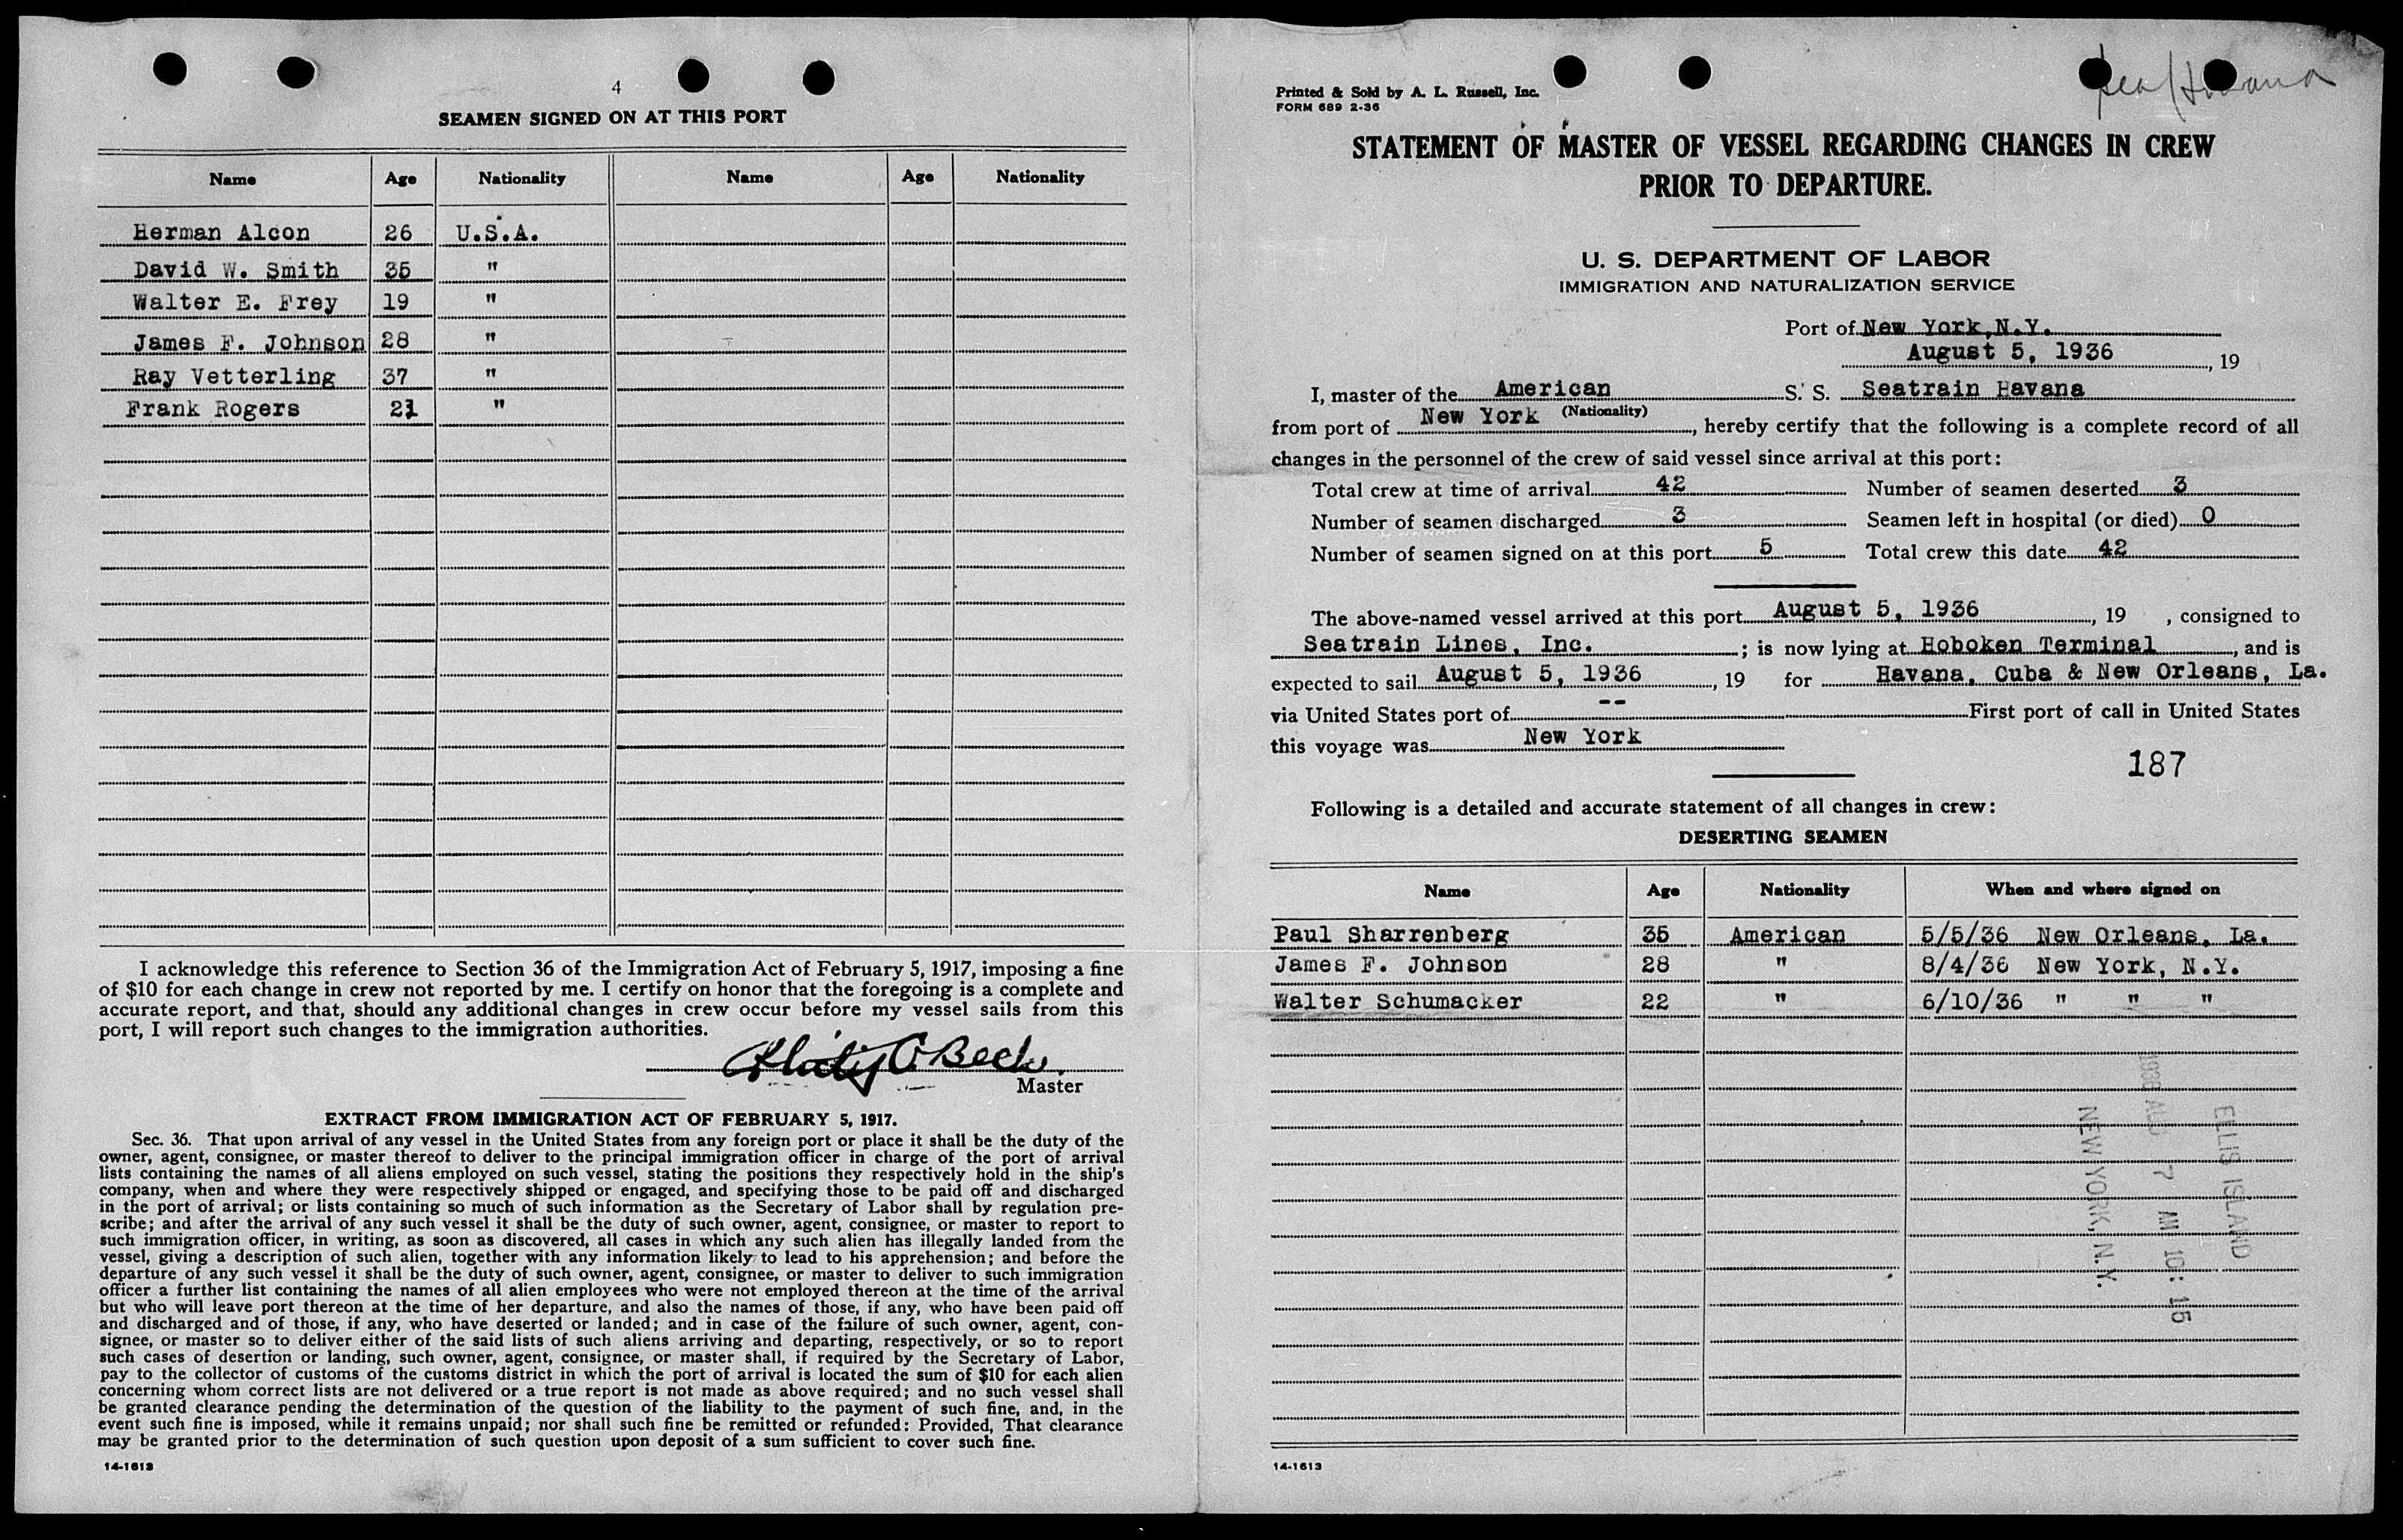 4
SEAMEN SIGNED ON AT THIS PORT
Name Age Nationality Name Age Nationality
Herman Alcon 26 U.S.A.
David W. Smith 35 "
Walter E. Frey 19 "
James F. Johnson 28 "
Ray Vetterling 37 "
Frank Rogers 21 "
I acknowledge this reference to Section 36 of the Immigration Act of February 5, 1917, imposing a fine
of $10 for each change in crew not reported by me. I certify on honor that the foregoing is a complete and
accurate report, and that, should any additional changes in crew occur before my vessel sails from this
port, I will report such changes to the immigration authorities.
Beck
Master
EXTRACT FROM IMMIGRATION ACT OF FEBRUARY 5, 1917.
Sec. 36. That upon arrival of any vessel in the United States from any foreign port or place it shall be the duty of the
owner, agent, consignee, or master thereof to deliver to the principal immigration officer in charge of the port of arrival
lists containing the names of all aliens employed on such vessel, stating the positions they respectively hold in the ship's
company, when and where they were respectively shipped or engaged, and specifying those to be paid off and discharged
in the port of arrival; or lists containing so much of such information as the Secretary of Labor shall by regulation pre-
scribe; and after the arrival of any such vessel it shall be the duty of such owner, agent, consignee, or master to report to
such immigration officer, in writing, as soon as discovered, all cases in which any such alien has illegally landed from the
vessel, giving a description of such alien, together with any information likely to lead to his apprehension; and before the
departure of any such vessel it shall be the duty of such owner, agent, consignee, or master to deliver to such immigration
officer a further list containing the names of all alien employees who were not employed thereon at the time of the arrival
but who will leave port thereon at the time of her departure, and also the names of those, if any, who have been paid off
and discharged and of those, if any, who have deserted or landed; and in case of the failure of such owner, agent, con-
signee, or master so to deliver either of the said lists of such aliens arriving and departing, respectively, or so to report
such cases of desertion or landing, such owner, agent, consignee, or master shall, if required by the Secretary of Labor,
pay to the collector of customs of the customs district in which the port of arrival is located the sum of $10 for each alien
concerning whom correct lists are not delivered or a true report is not made as above required; and no such vessel shall
be granted clearance pending the determination of the question of the liability to the payment of such fine, and, in the
event such fine is imposed, while it remains unpaid; nor shall such fine be remitted or refunded: Provided, That clearance
may be granted prior to the determination of such question upon deposit of a sum sufficient to cover such fine.
14-1613
Printed & Sold by A. L. Russell, Inc.
FORM 689 2-36
STATEMENT OF MASTER OF VESSEL REGARDING CHANGES IN CREW
PRIOR TO DEPARTURE.
U. S. DEPARTMENT OF LABOR
IMMIGRATION AND NATURALIZATION SERVICE
Port of New York, N.Y.
August 5, 1936, 19
I, master of the American S. S. Seatrain Havana
(Nationality)
from port of New York, hereby certify that the following is a complete record of all
changes in the personnel of the crew of said vessel since arrival at this port:
Total crew at time of arrival 42 Number of seamen deserted 3
Number of seamen discharged 3 Seamen left in hospital (or died) 0
Number of seamen signed on at this port 5 Total crew this date 42
The above-named vessel arrived at this port August 5, 1936, 19 , consigned to
Seatrain Lines, Inc. ; is now lying at Hoboken Terminal, and is
expected to sail August 5, 1936, 19 for Havana, Cuba & New Orleans, La.
via United States port of -- First port of call in United States
this voyage was New York
187
Following is a detailed and accurate statement of all changes in crew:
DESERTING SEAMEN
Name Age Nationality When and where signed on
Paul Sharrenberg 35 American 5/5/36 New Orleans, La.
James F. Johnson 28 " 8/4/36 New York, N.Y.
Walter Schumacker 22 " 6/10/36 " " "
ELLIS ISLAND
1936 AUG 7 AM 10: 15
NEW YORK, N.Y.
14-1613